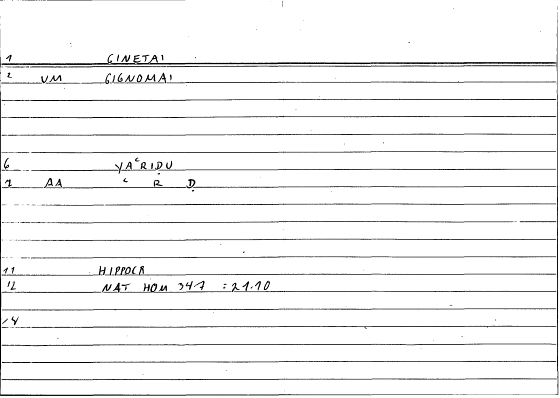 1 GINETAI
2 VM GIGNOMAI
6 YAʿRIḌU
7 AA ʿ R Ḍ
11 HIPPOCR
12 NAT HOM 347 = 21.10
14